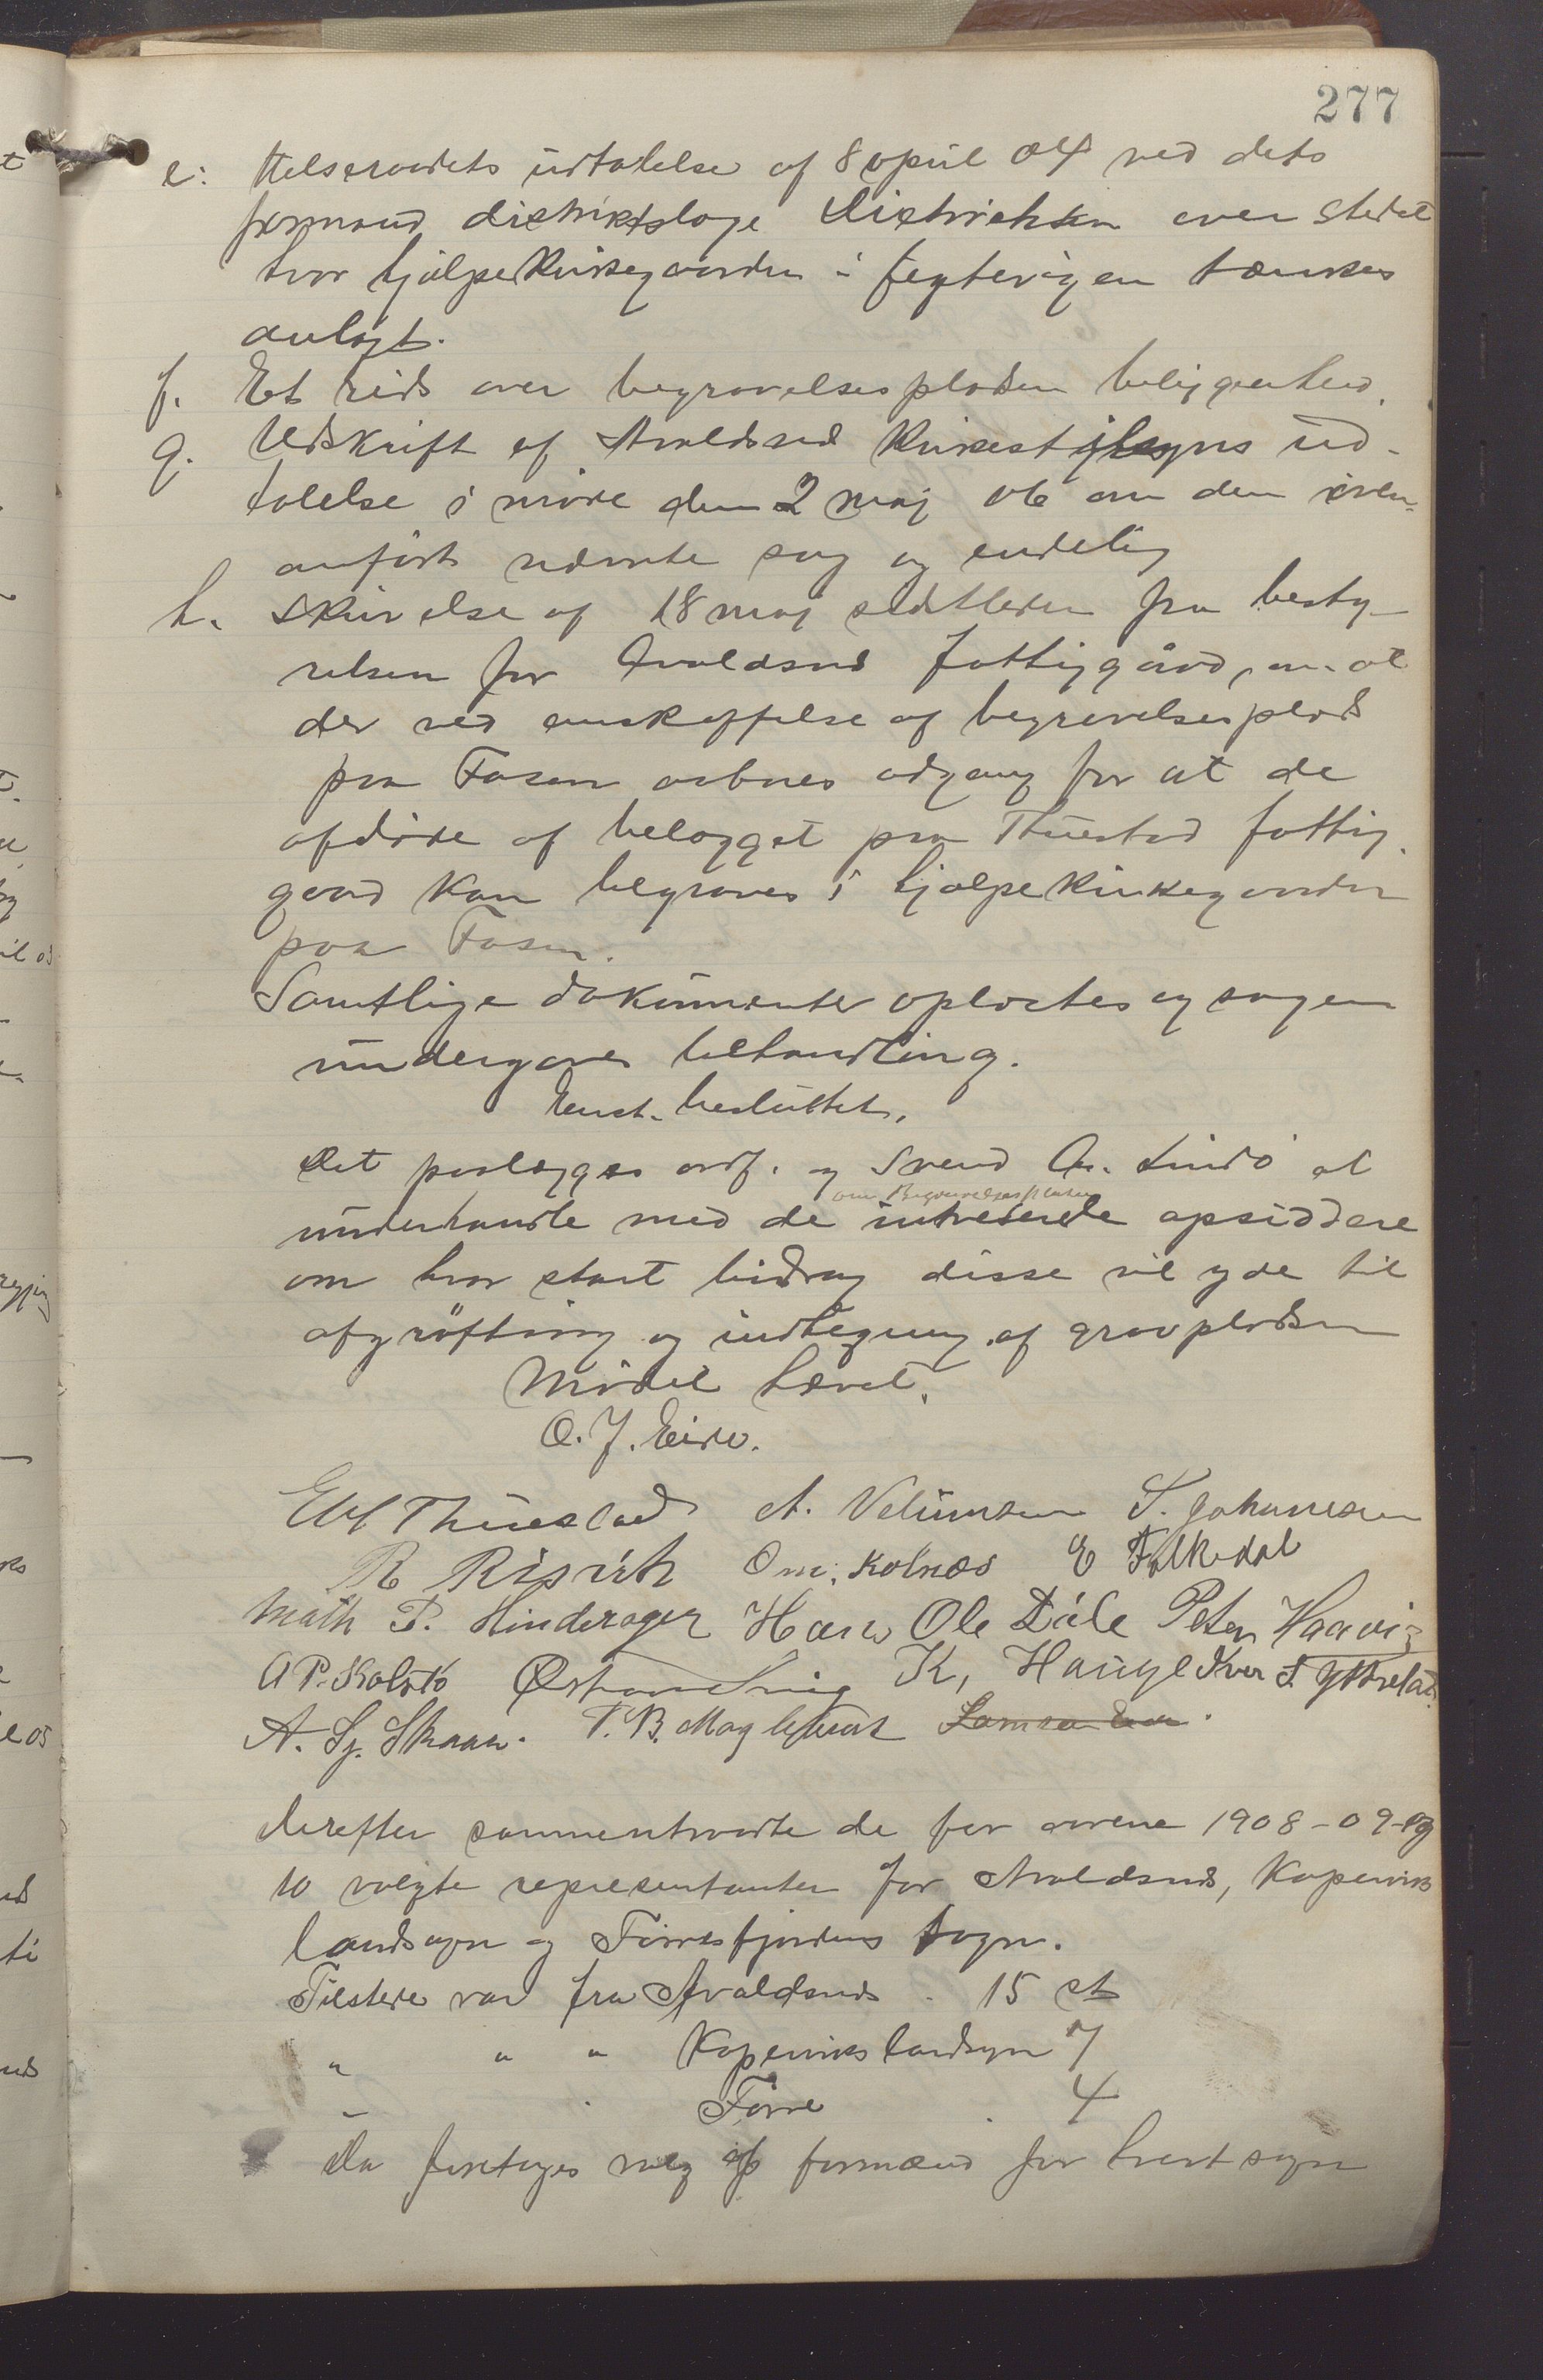 277
e: Helseraadets udtalelse af 8 april 04 ved dets
formand distriktslæge Dietrichsen over stedet
hvor hjælpekirkegaarden i Fægtevigen tænkes
anlagt.
f. Et rids over begravelsespladsen beliggenhed.
g. Udskrift af Avaldsnes kirkestilsyns ud-
talelse i møde den 2 maj 06 om den oven-
anførte nævnte sag og endelig
h. Skrivelse af 18 maj sidstleden fra besty-
relsen for Avaldsnes fattiggård, om at
der ved anskaffelse af begravelsesplads
paa Fosen aabnes adgang for at de
afdøde af belægget paa Thuestad fattig-
gaard kan begraves i hjælpekirkegaarden
paa Fosen.
Samtlige dokumenter oplæstes og sagen
undergaves behandling.
Enst. besluttet.
Det paalægges ordf. og Svend An. Lindø at
om Begravelsespladsen
underhandle med de intreserede opsiddere
om hvor stort bidrag disse vil yde til
afgrøftning og indhegning af gravpladsen
Mødet hævet.
O. J. Eide.
Thuestad A. Velumsen S. Johannesen
R Risvik Om. Kolnes E Falkedal
Math P. Hinderager Hans Ole Dale Peter Haavig
A P. Kolstø K, Hauge Iver S. Yttreland
A. Sj. Skaar. T. B. Mogleburst
Derefter sammentraadte de for aarene 1908-09-og
10 valgte representanter for Avaldsnes, Kopervik
landsogn og Førresfjordens sogn.
Tilstede var fra Avaldsnes . 15 st
" " " Koperviks landsogn 7
" . Førre . 4
Da foretoges valg af formænd for hvert sogn